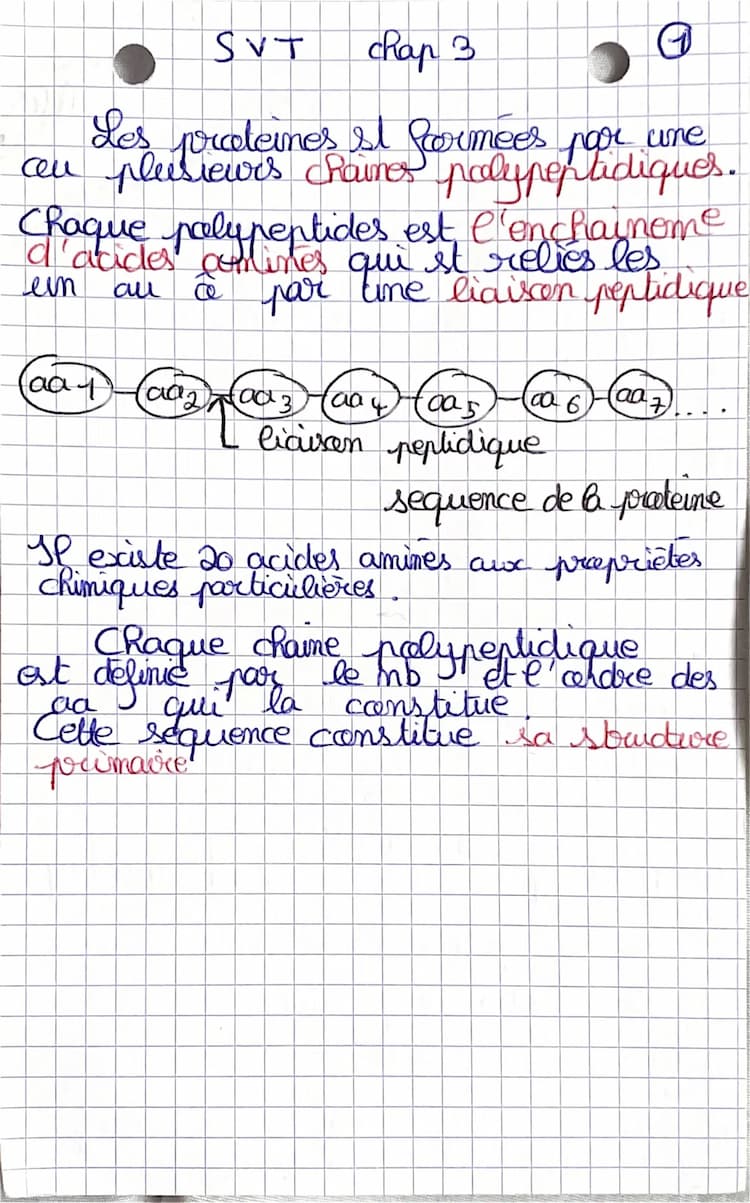 SVT chap 3 1
Les proteines st formées par une
ou plusieurs chaines polypeptidiques.
Chaque polypeptides est l'enchaineme
d'acides aminés qui st reliés les
un au par une liaison peptidique
aa 1 - aa 2 - aa 3 - aa 4 - aa 5 - aa 6 - aa 7 ....
liaison peptidique
sequence de la proteine
Il existe 20 acides aminés aux propriétés
chimiques particulières.
Chaque chaine polypeptidique
est definie par le nb et l'ordre des
aa qui la constitue.
Cette séquence constitue sa structure
primaire